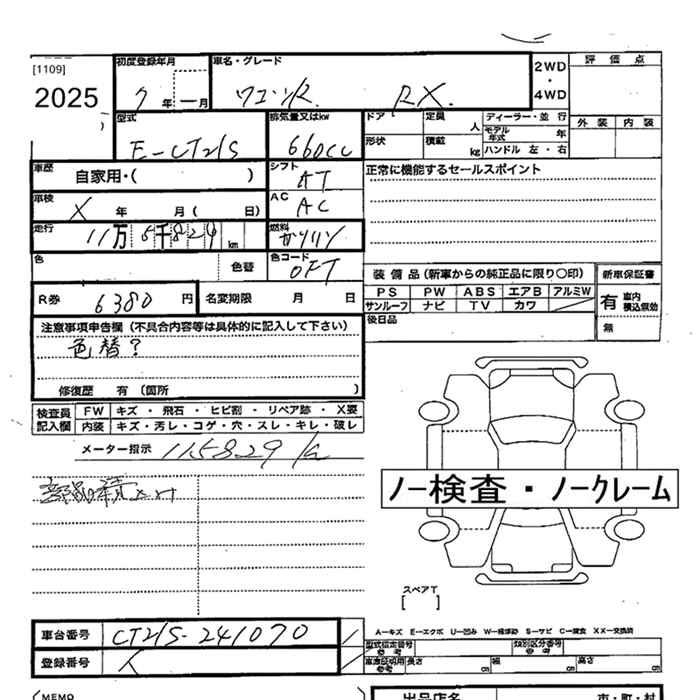 [1109]
2025
初度登録年月
7 年 一 月
車名・グレード
ワゴンR RX.
2WD
・
4WD
評価点
外装 内装
型式
E-CT21S
排気量又はkw
660cc
ドア
定員
人
形状
積載
kg
ディーラー・並行
モデル年式
年
ハンドル 左・右
車歴
自家用・( )
シフト
AT
正常に機能するセールスポイント
車検
X 年 月( 日)
AC
AC
走行
11万5千829 km
燃料
ガソリン
色
色替
色コード
0FT
装備品(新車からの純正品に限り〇印)
新車保証書
PS PW ABS エアB アルミW
サンルーフ ナビ TV カワ
有 車内積込無効
無
R券
6380 円
名変期限 月 日
後日品
注意事項申告欄(不具合内容等は具体的に記入して下さい)
色替?
修復歴 有(箇所 )
検査員記入欄
FW キズ・飛石・ヒビ割・リペア跡・X要
内装 キズ・汚レ・コゲ・穴・スレ・キレ・破レ
メーター指示 115829 k
ノー検査・ノークレーム
スペアT
[ ]
車台番号 CT21S-241070
登録番号
A-キズ E-エクボ U-凹み W-補修跡 S-サビ C-腐食 XX-交換済
型式指定番号
参考
類別区分番号
参考
車庫証明用
参考
長さ cm 幅 cm 高さ cm
(MEMO
出品店名
市・町・村